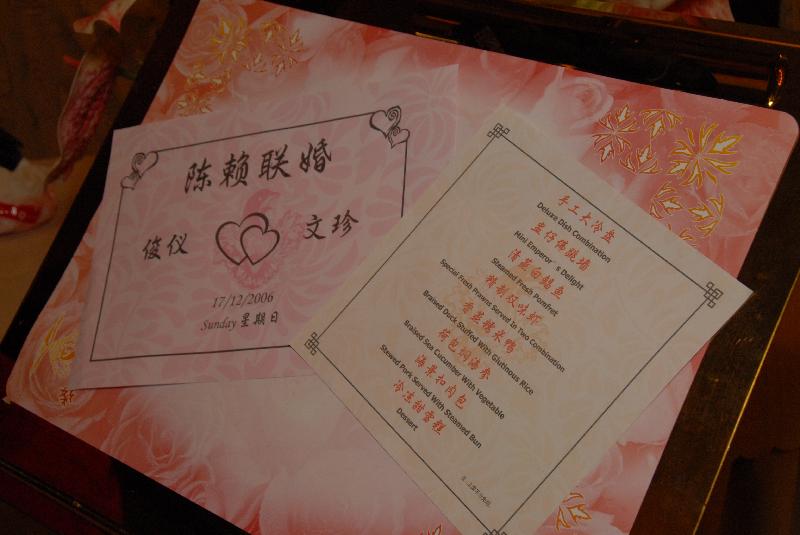 陈赖联婚
俊仪 文珍
17/12/2006
Sunday 星期日
手工大冷盘
Deluxe Dish Combination
盅仔佛跳墙
Mini Emperor's Delight
清蒸白鲳鱼
Steamed Fresh Pomfret
特制双味虾
Special Fresh Prawns Served In Two Combination
香蒸糯米鸭
Braised Duck Stuffed With Glutinous Rice
荷包焖海参
Braised Sea Cucumber With Vegetable
海景扣肉包
Stewed Pork Served With Steamed Bun
冷冻甜雪糕
Dessert